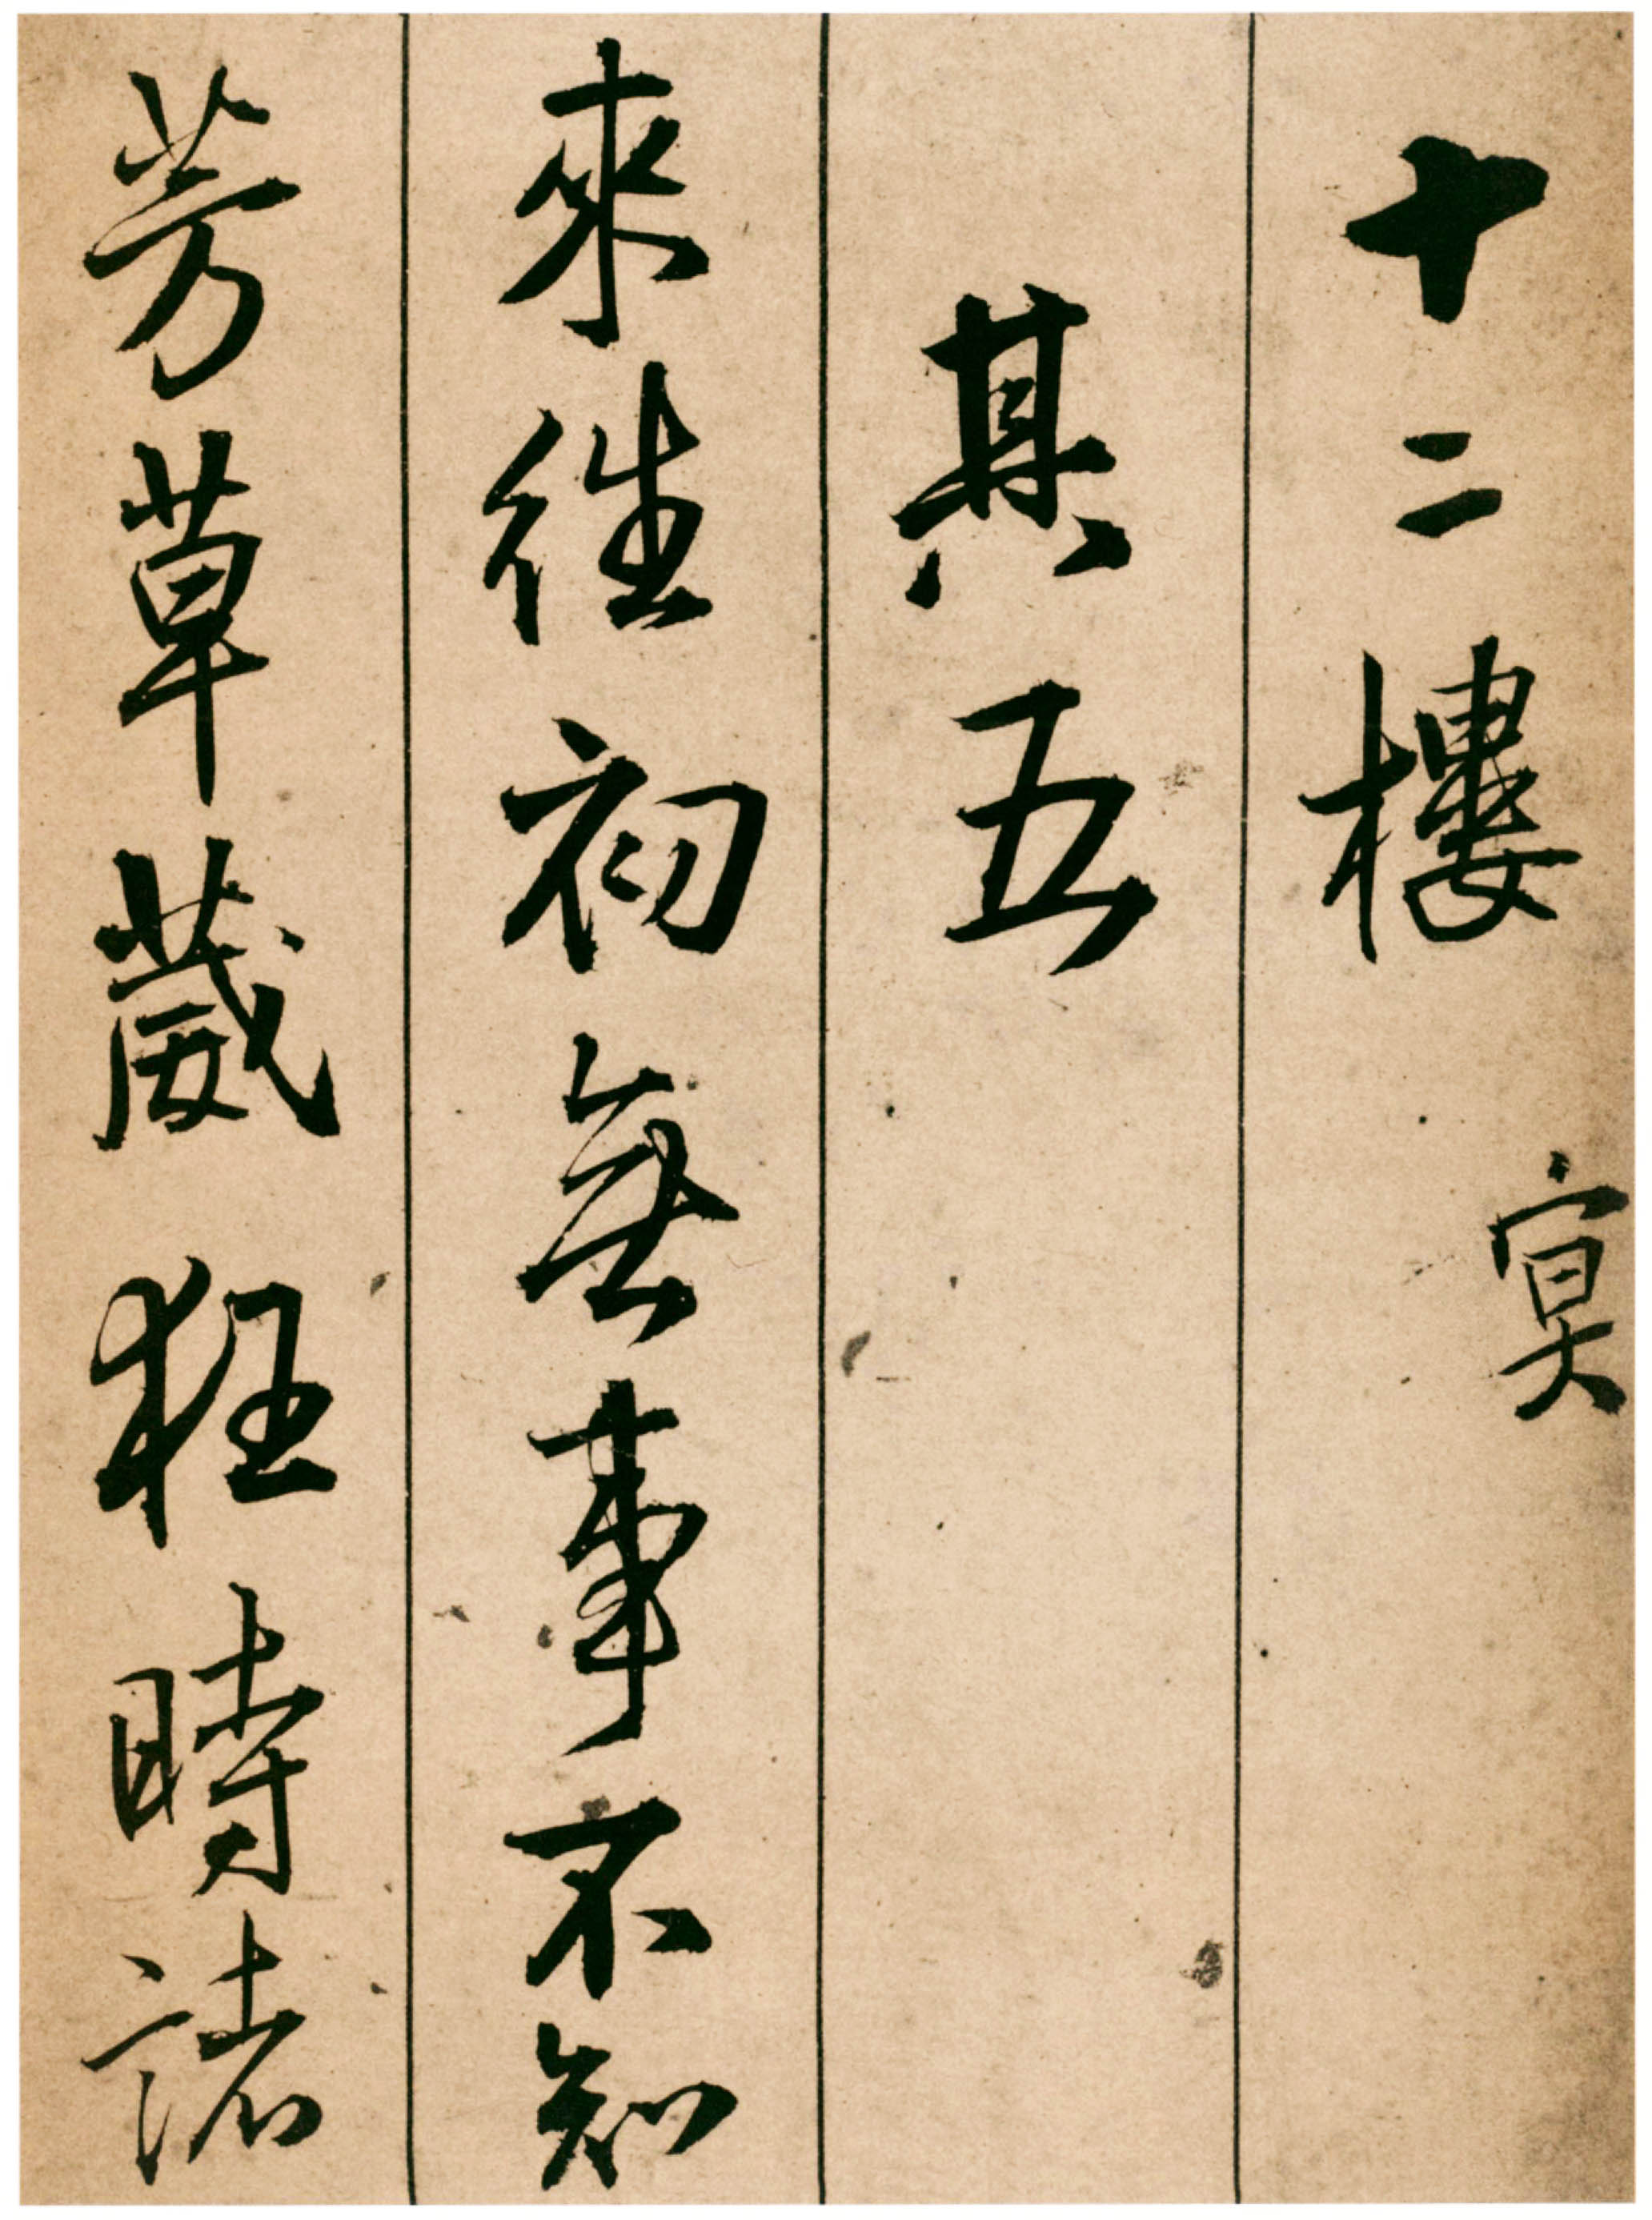 十二樓
㝠
其五
來往初無事不知
芳草葳狂時諸